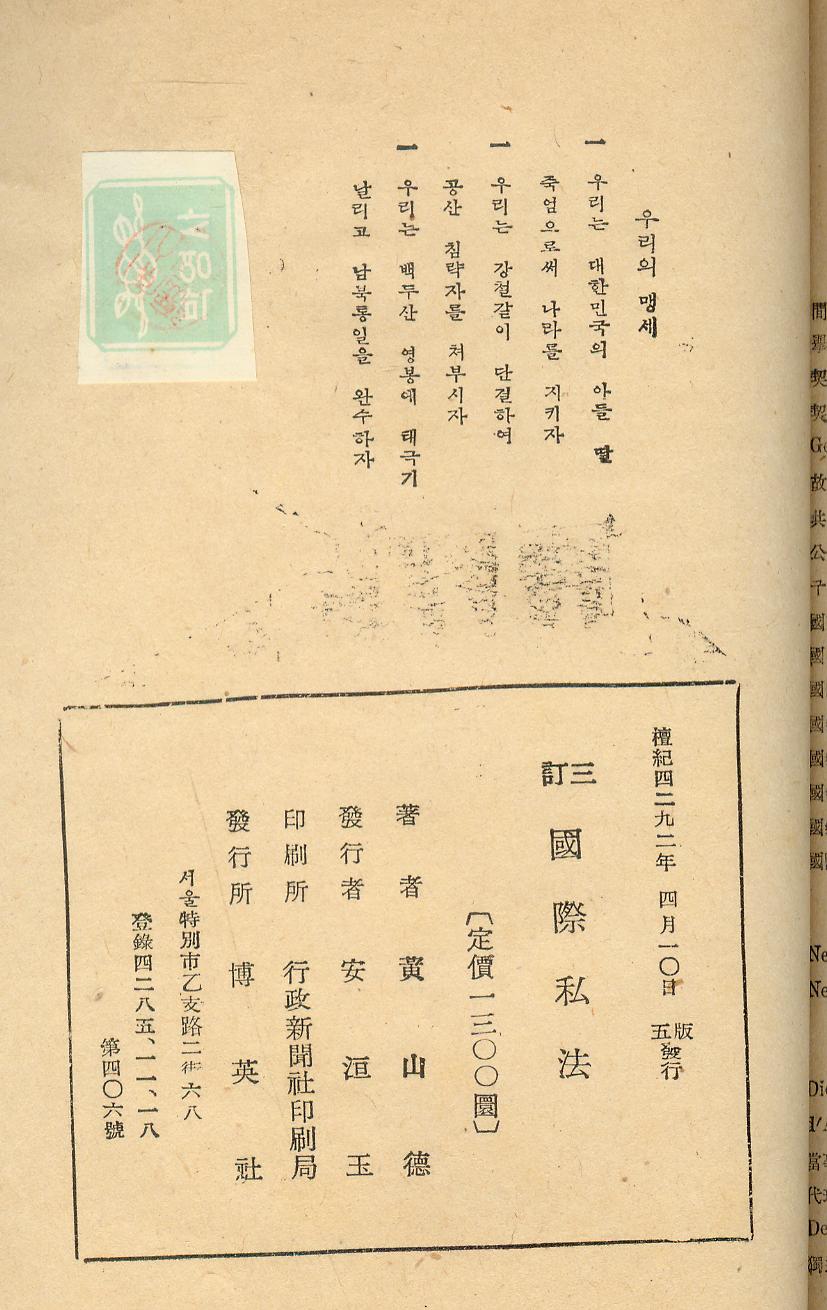 우리의 맹세
一 우리는 대한민국의 아들 딸
죽엄으로써 나라를 지키자
一 우리는 강철같이 단결하여
공산 침략자를 처부시자
一 우리는 백두산 영봉에 태극기
날리고 남북통일을 완수하자
檀紀四二九二年 四月一〇日 五版發行
三訂 國際私法
〔定價一三〇〇圜〕
著者 黃山德
發行者 安洹玉
印刷所 行政新聞社印刷局
發行所 博英社
서울特別市乙支路二街六八
登錄四二八五、一一、一八
第四〇六號